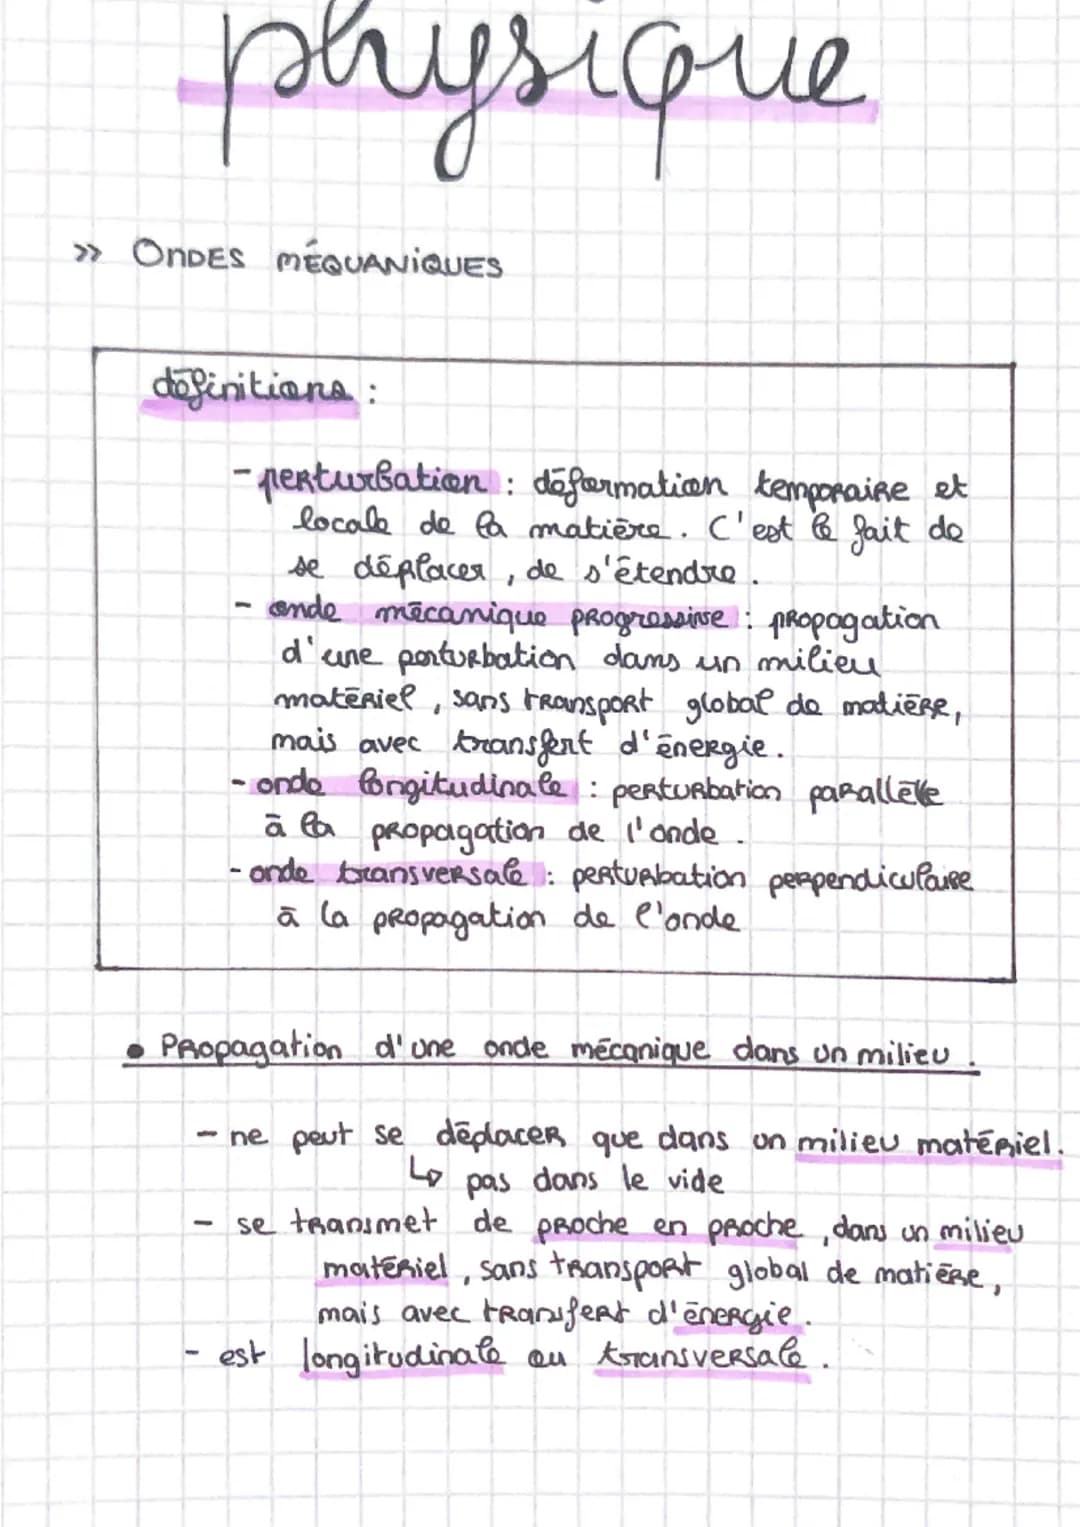 physique
>> ONDES MÉQUANIQUES
définitions :
- perturbation : déformation temporaire et
locale de la matière. C'est le fait de
se déplacer, de s'étendre.
- onde mécanique progressive : propagation
d'une perturbation dans un milieu
matériel, sans transport global de matière,
mais avec transfert d'énergie.
- onde longitudinale : perturbation parallèle
à la propagation de l'onde.
- onde transversale : perturbation perpendiculaire
à la propagation de l'onde
• Propagation d'une onde mécanique dans un milieu.
- ne peut se déplacer que dans un milieu matériel.
↳ pas dans le vide
- se transmet de proche en proche, dans un milieu
matériel, sans transport global de matière,
mais avec transfert d'énergie.
- est longitudinale ou transversale.